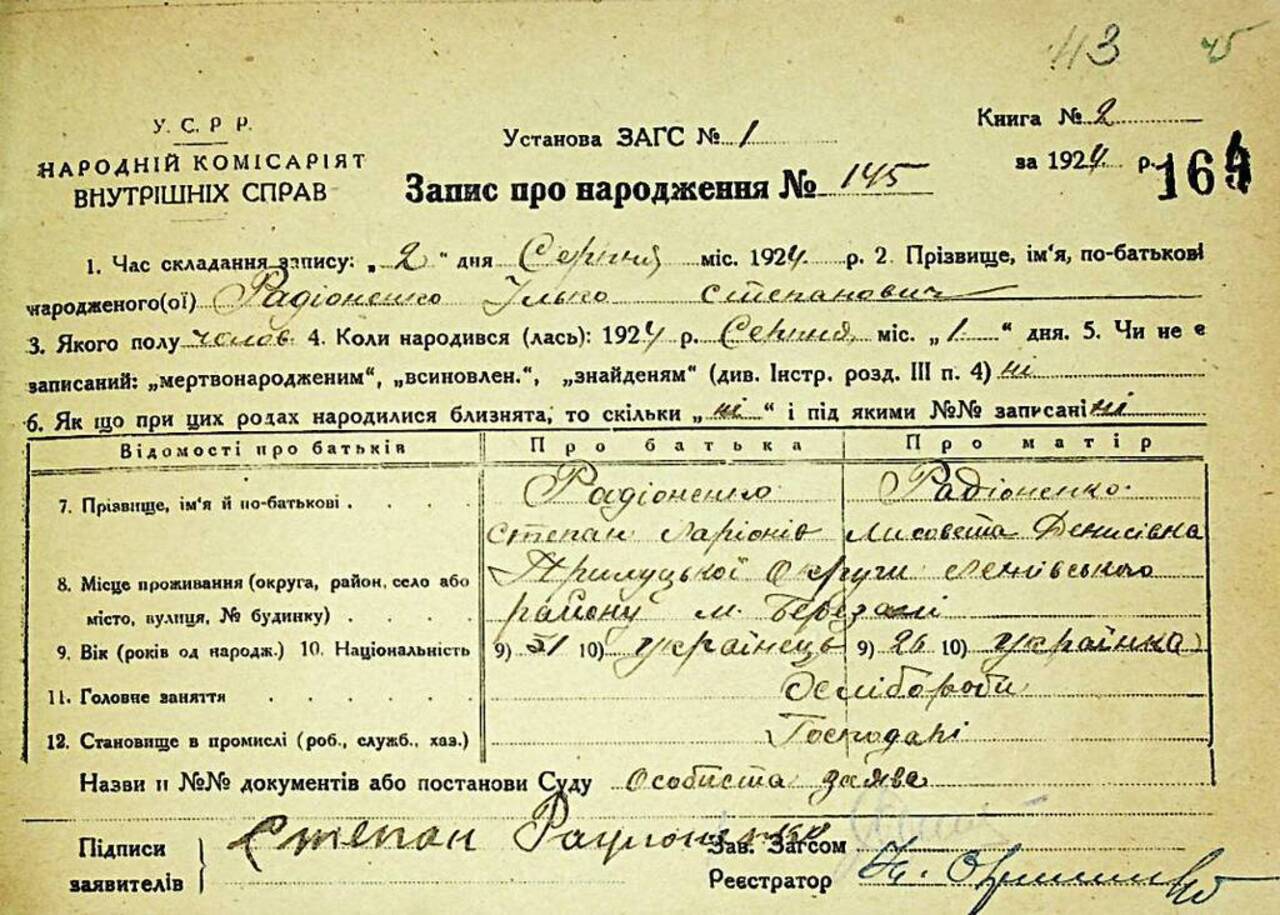 43 45
У. С. Р Р.
НАРОДНІЙ КОМІСАРІЯТ
ВНУТРІШНІХ СПРАВ
Установа ЗАГС № 1
Книга № 2
за 1924 р.
164
Запис про народження № 145
1. Час складання запису: „ 2 " дня Серпня міс. 1924. р. 2. Прізвище, ім'я, по-батькові
народженого(ої) Радіоненко Ілько Степанович
3. Якого полу чолов. 4. Коли народився (лась): 1924 р. Серпня міс. „ 1 " дня. 5. Чи не є
записаний: „мертвонародженим", „всиновлен.", „знайденям" (див. Інстр. розд. III п. 4) ні
6. Як що при цих родах народилися близнята, то скільки „ ні " і під якими №№ записані ні
Відомості про батьків Про батька Про матір
7. Прізвище, ім'я й по-батькові . . . . Радіоненко Радіоненко
Степан Ларіонів Лисовета Денисівна
8. Місце проживання (округа, район, село або Прилуцької Округи
місто, вулиця, № будинку) . . . . району м. Березані
9. Вік (років од народж.) 10. Національність 9) 10) українець 9) 26 10) українка
11. Головне заняття . . . . . . Хліборобы
12. Становище в промислі (роб., служб., хаз.) Господарі
Назви и №№ документів або постанови Суду Особиста заява
Підписи
заявителів
Степан
Зав. Загсом
Реєстратор